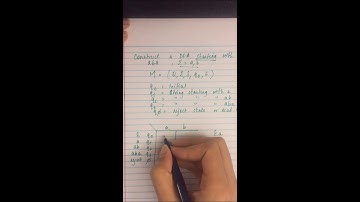 Construct a DFA starting with
aba . Σ = a, b
M = (Q, Σ, δ, q0, F)
q0 = Initial
q1 = String starting with a
q2 = " " " ab
q3 = " " " aba
qφ = reject state or dead
a b
Σ q0
a q1
ab q2
aba q3
reject φ